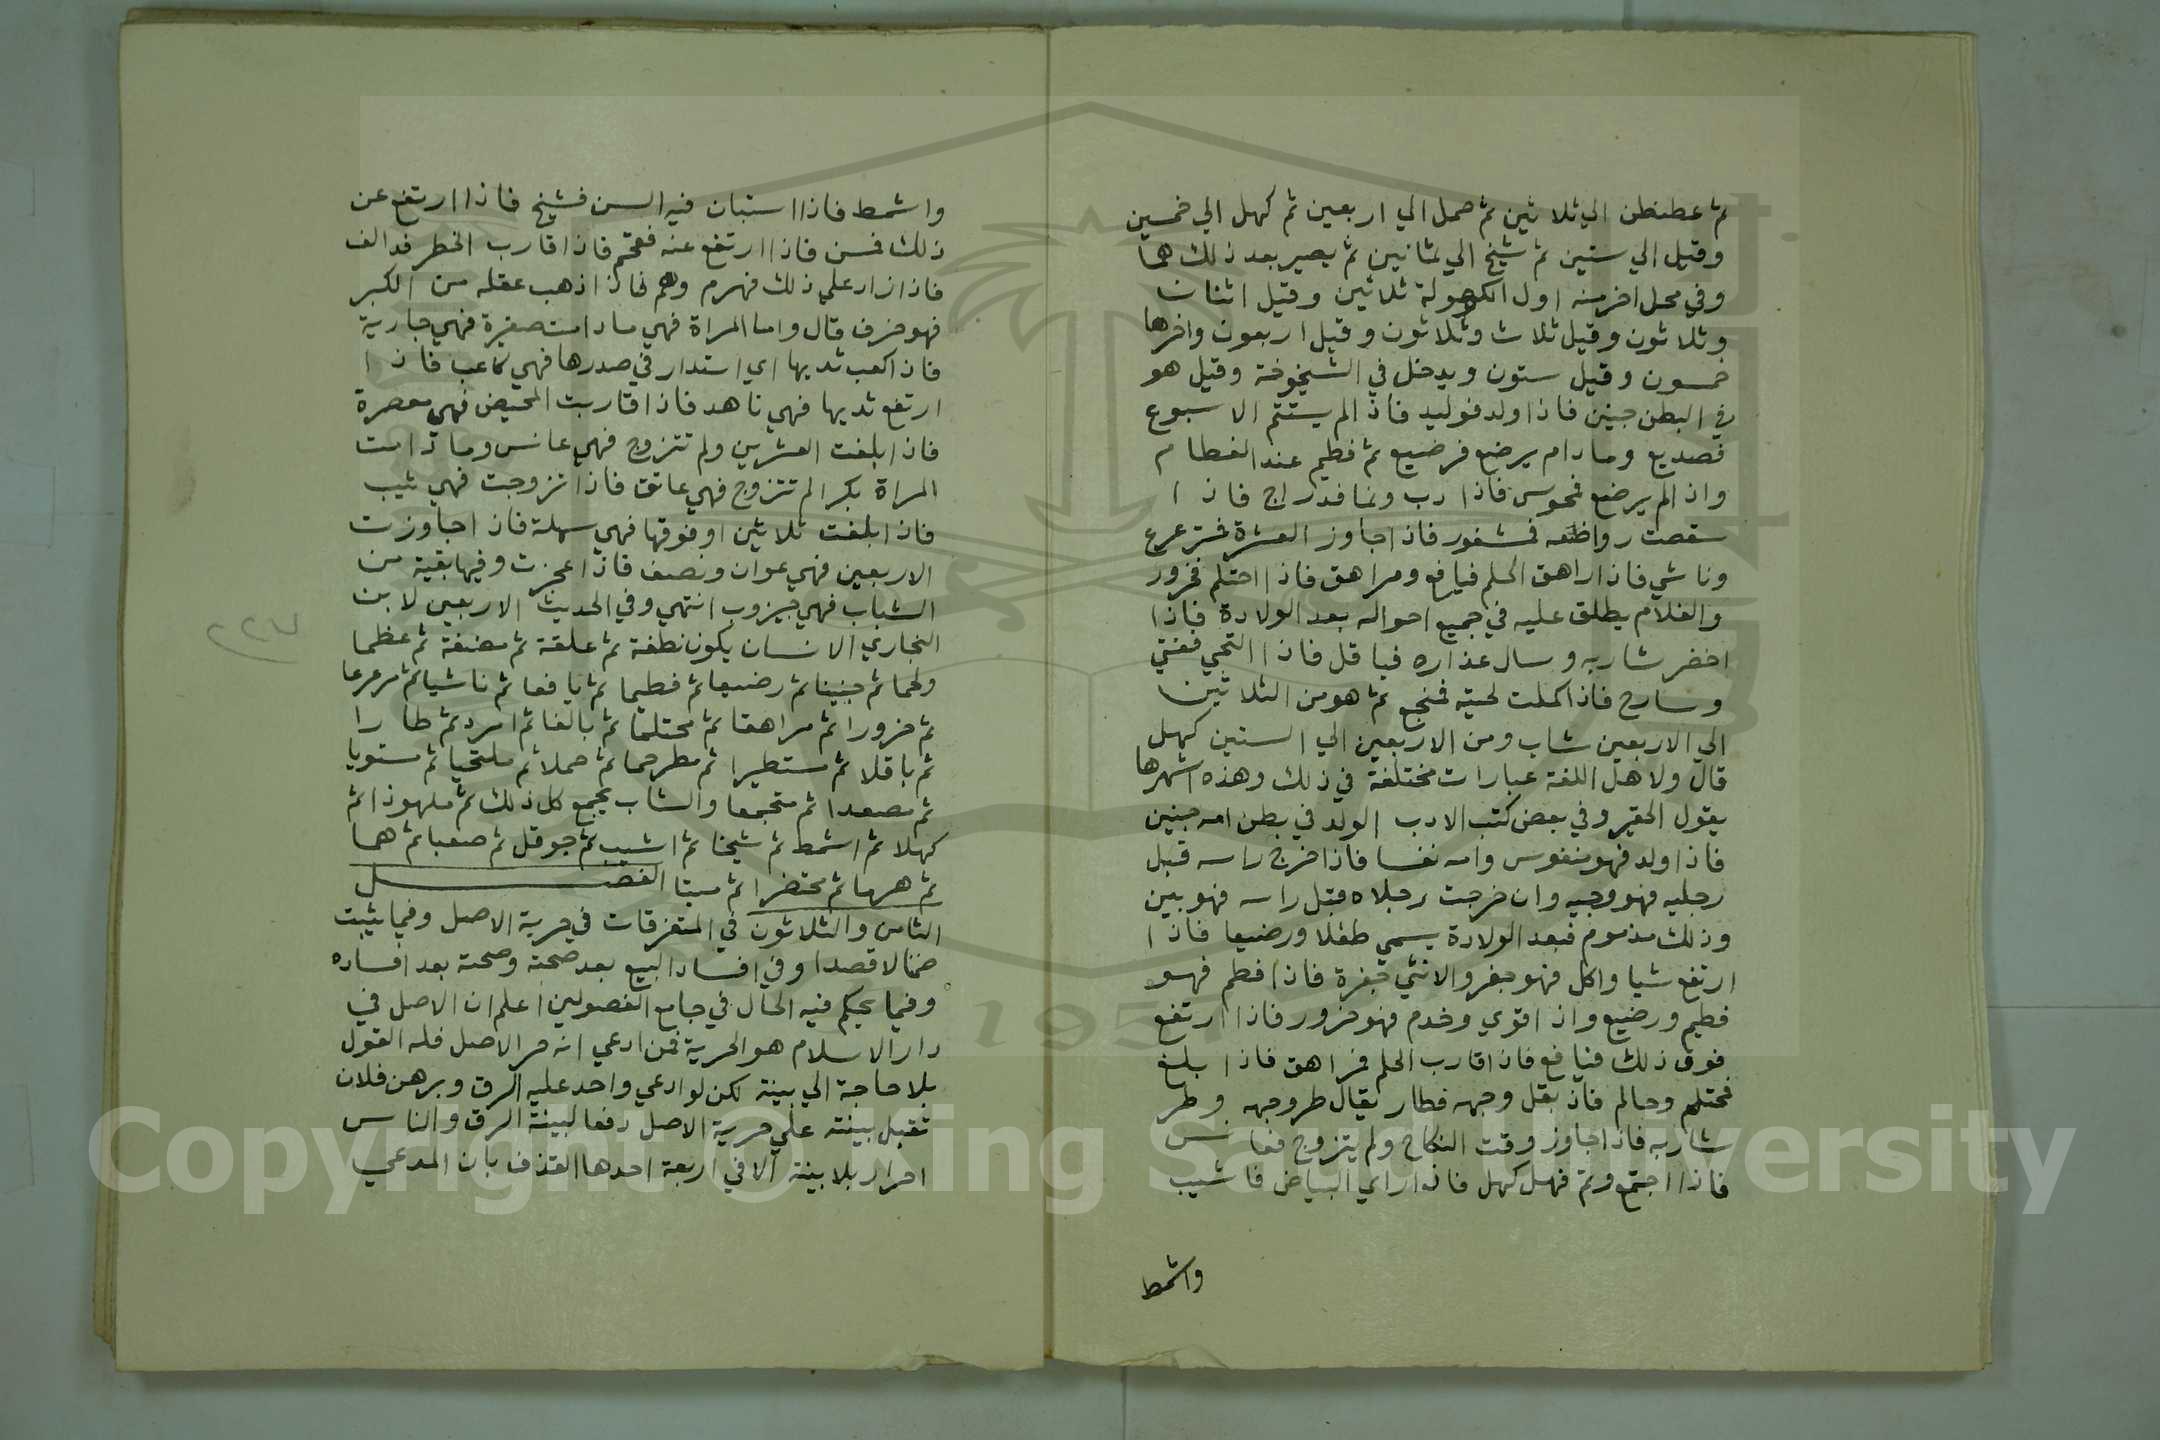 ثم عطنطن الي ثلاثين ثم صمل الي اربعين ثم كهل الي خمسين
وقيل الي ستين ثم شيخ الي ثمانين ثم يصير بعد ذلك هما
وفي محل اخر منه اول الكهولة ثلاثين وقيل اثنان
وثلاثون وقيل ثلاث وثلاثون وقيل اربعون واخرها
خمسون وقيل ستون ويدخل في الشيخوخة وقيل هو
في البطن جنين فاذا ولد فوليد فاذا لم يستتم الاسبوع
فصديع ومادام يرضع فرضيع ثم فطيم عند الفطام
واذا لم يرضع فحوس فاذا دب ونما فدراج فاذا
سقطت رواضعه فمشغور فاذا جاوز العشرة فمترعرع
وناشي فاذا راهق الحلم فيافع ومراهق فاذا احتلم فحزور
والغلام يطلق عليه في جميع احواله بعد الولادة فاذا
اخضر شاربه وسال عذاره فباقل فاذا التحي ففتي
وسارح فاذا كملت لحيته فمجتمع ثم هو من الثلاثين
الي الاربعين شاب ومن الاربعين الي الستين كهل
قال ولاهل اللغة عبارات مختلفة في ذلك وهذه اشهرها
يقول الحقير وفي بعض كتب الادب الولد في بطن امه جنين
فاذا ولد فهو منفوس وامه نفسا فاذا خرج راسه قبل
رجليه فهو وجيه وان خرجت رجلاه قبل راسه فهو يتن
وذلك مذموم فبعد الولادة يسمي طفلا ورضيعا فاذا
ارتفع شيا واكل فهو جفر والانثي جفرة فاذا فطم فهو
فطيم ورضيع واذا قوي وخدم فهو حزور فاذا ارتفع
فوق ذلك فيافع فاذا قارب الحلم فمراهق فاذا بلغ
فمحتلم وحالم فاذا بقل وجهه فطار يقال طر وجهه وطر
شاربه فاذا جاوز وقت النكاح ولم يتزوج فعانس
فاذا اجتمع وتم فهل كهل فاذا راي البياض فاشيب
واشمط
واشمط فاذا استبان فيه السن فشيخ فاذا ارتفع عن
ذلك فمسن فاذا ارتفع عنه فقحم فاذا قارب الخطر فدالف
فاذا زاد علي ذلك فهرم وهم فاذا ذهب عقله من الكبر
فهو خرف قال واما المراة فهي مادامت صغيرة فهي جارية
فاذا كعب ثديها اي استدار في صدرها فهي كاعب فاذا
ارتفع ثديها فهي ناهد فاذا قاربت المحيض فهي معصرة
فاذا بلغت العشرين ولم تتزوج فهي عانس ومادامت
المراة بكرا لم تتزوج فهي عاتق فاذا تزوجت فهي ثيب
فاذا بلغت ثلاثين او فوقها فهي سهلة فاذا جاوزت
الاربعين فهي عوان ونصف فاذا عجزت وفيها بقية من
الشباب فهي حيزوب انتهي وفي الحديث الاربعين لابن
النجاري الانسان يكون نطفة ثم علقة ثم مضغة ثم عظما
ولحما ثم جنينا ثم رضيعا ثم فطيما ثم يافعا ثم ناشيا ثم مرعرعا
ثم حزورا ثم مراهقا ثم محتلما ثم بالغا ثم امرد ثم طارا
ثم باقلا ثم مستطيرا ثم مطرخما ثم صملا ثم ملتحيا ثم مستويا
ثم مصعدا ثم مجتمعا والشاب يجمع كل ذلك ثم ملهوزا ثم
كهلا ثم اشمط ثم شيخا ثم اشيب ثم حوقل ثم صعبا ثم هما
ثم هرما ثم محتضرا ثم ميتا الفصل
الثامن والثلاثون في المتفرقات في حرية الاصل وفيما يثبت
ضمنا لا قصدا وفي افساد البيع بعد صحته وصحته بعد افساده
وفيما يحكم فيه الحال في جامع الفصولين اعلم ان الاصل في
دار الاسلام هو الحرية فمن ادعي انه حر الاصل فله القول
بلا حاجة الي بينة لكن لو ادعي واحد عليه الرق وبرهن فلان
تقبل بينته علي حرية الاصل دفعا لبينة الرق والناس
احرار بلا بينة الا في اربعة احدها القذف بان المدعي
٢٢٧
1957
Copyright © King Saud University